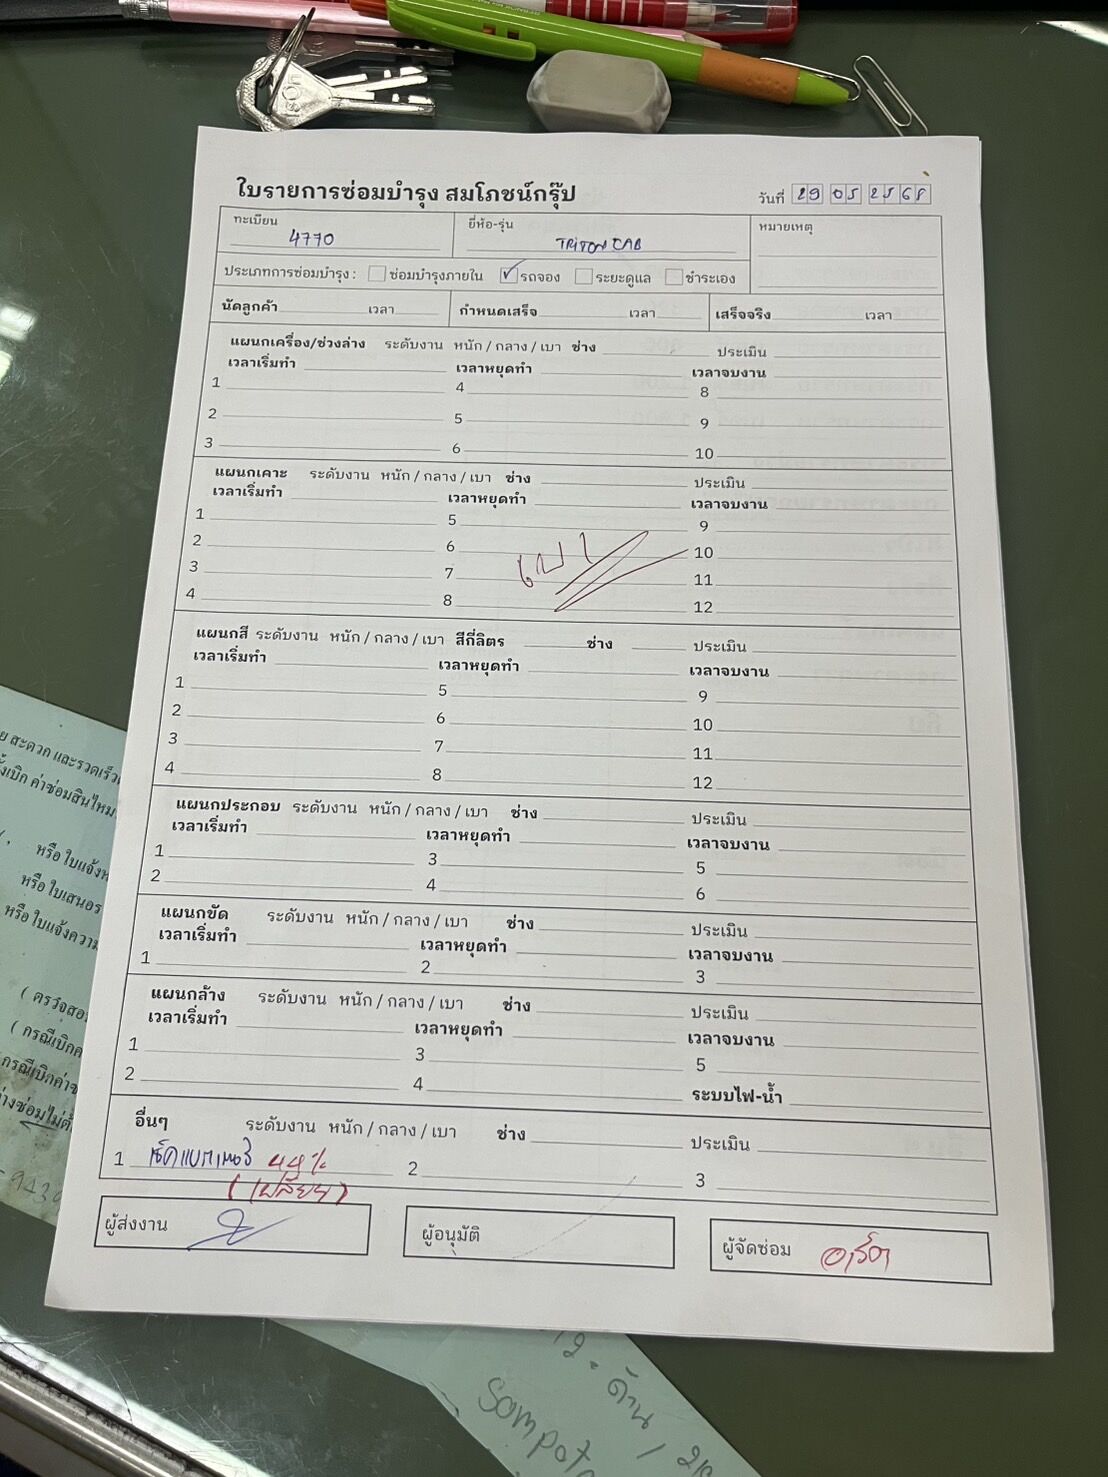 ใบรายการซ่อมบำรุง สมโภชน์กรุ๊ป
วันที่ 29 05 2568
ทะเบียน 4770
ยี่ห้อ-รุ่น TRITON CAB
หมายเหตุ
ประเภทการซ่อมบำรุง : ซ่อมบำรุงภายใน รถจอง ระยะดูแล ชำระเอง
นัดลูกค้า เวลา กำหนดเสร็จ เวลา เสร็จจริง เวลา
แผนกเครื่อง/ช่วงล่าง ระดับงาน หนัก / กลาง / เบา ช่าง ประเมิน
เวลาเริ่มทำ เวลาหยุดทำ เวลาจบงาน
1 4 8
2 5 9
3 6 10
แผนกเคาะ ระดับงาน หนัก / กลาง / เบา ช่าง ประเมิน
เวลาเริ่มทำ เวลาหยุดทำ เวลาจบงาน
1 5 9
2 6 10
3 7 11
4 8 12
เบา
แผนกสี ระดับงาน หนัก / กลาง / เบา สีกี่ลิตร ช่าง ประเมิน
เวลาเริ่มทำ เวลาหยุดทำ เวลาจบงาน
1 5 9
2 6 10
3 7 11
4 8 12
แผนกประกอบ ระดับงาน หนัก / กลาง / เบา ช่าง ประเมิน
เวลาเริ่มทำ เวลาหยุดทำ เวลาจบงาน
1 3 5
2 4 6
แผนกขัด ระดับงาน หนัก / กลาง / เบา ช่าง ประเมิน
เวลาเริ่มทำ เวลาหยุดทำ เวลาจบงาน
1 2 3
แผนกล้าง ระดับงาน หนัก / กลาง / เบา ช่าง ประเมิน
เวลาเริ่มทำ เวลาหยุดทำ เวลาจบงาน
1 3 5
2 4 ระบบไฟ-น้ำ
อื่นๆ ระดับงาน หนัก / กลาง / เบา ช่าง ประเมิน
1 เช็คแบตเตอรี่ 44% 2 3
(เปลี่ยน)
ผู้ส่งงาน ผู้อนุมัติ ผู้จัดซ่อม
สะดวก และรวดเร็ว
เบิก ค่าซ่อมสินไหม
หรือ ใบแจ้งห
หรือ ใบเสนอร
หรือ ใบแจ้งความ
( ตรวจสอ
( กรณีเบิกค
กรณีเบิกค่าซ
ช่างซ่อมไม่ต้
943
12 - ด้าน /
Sompot